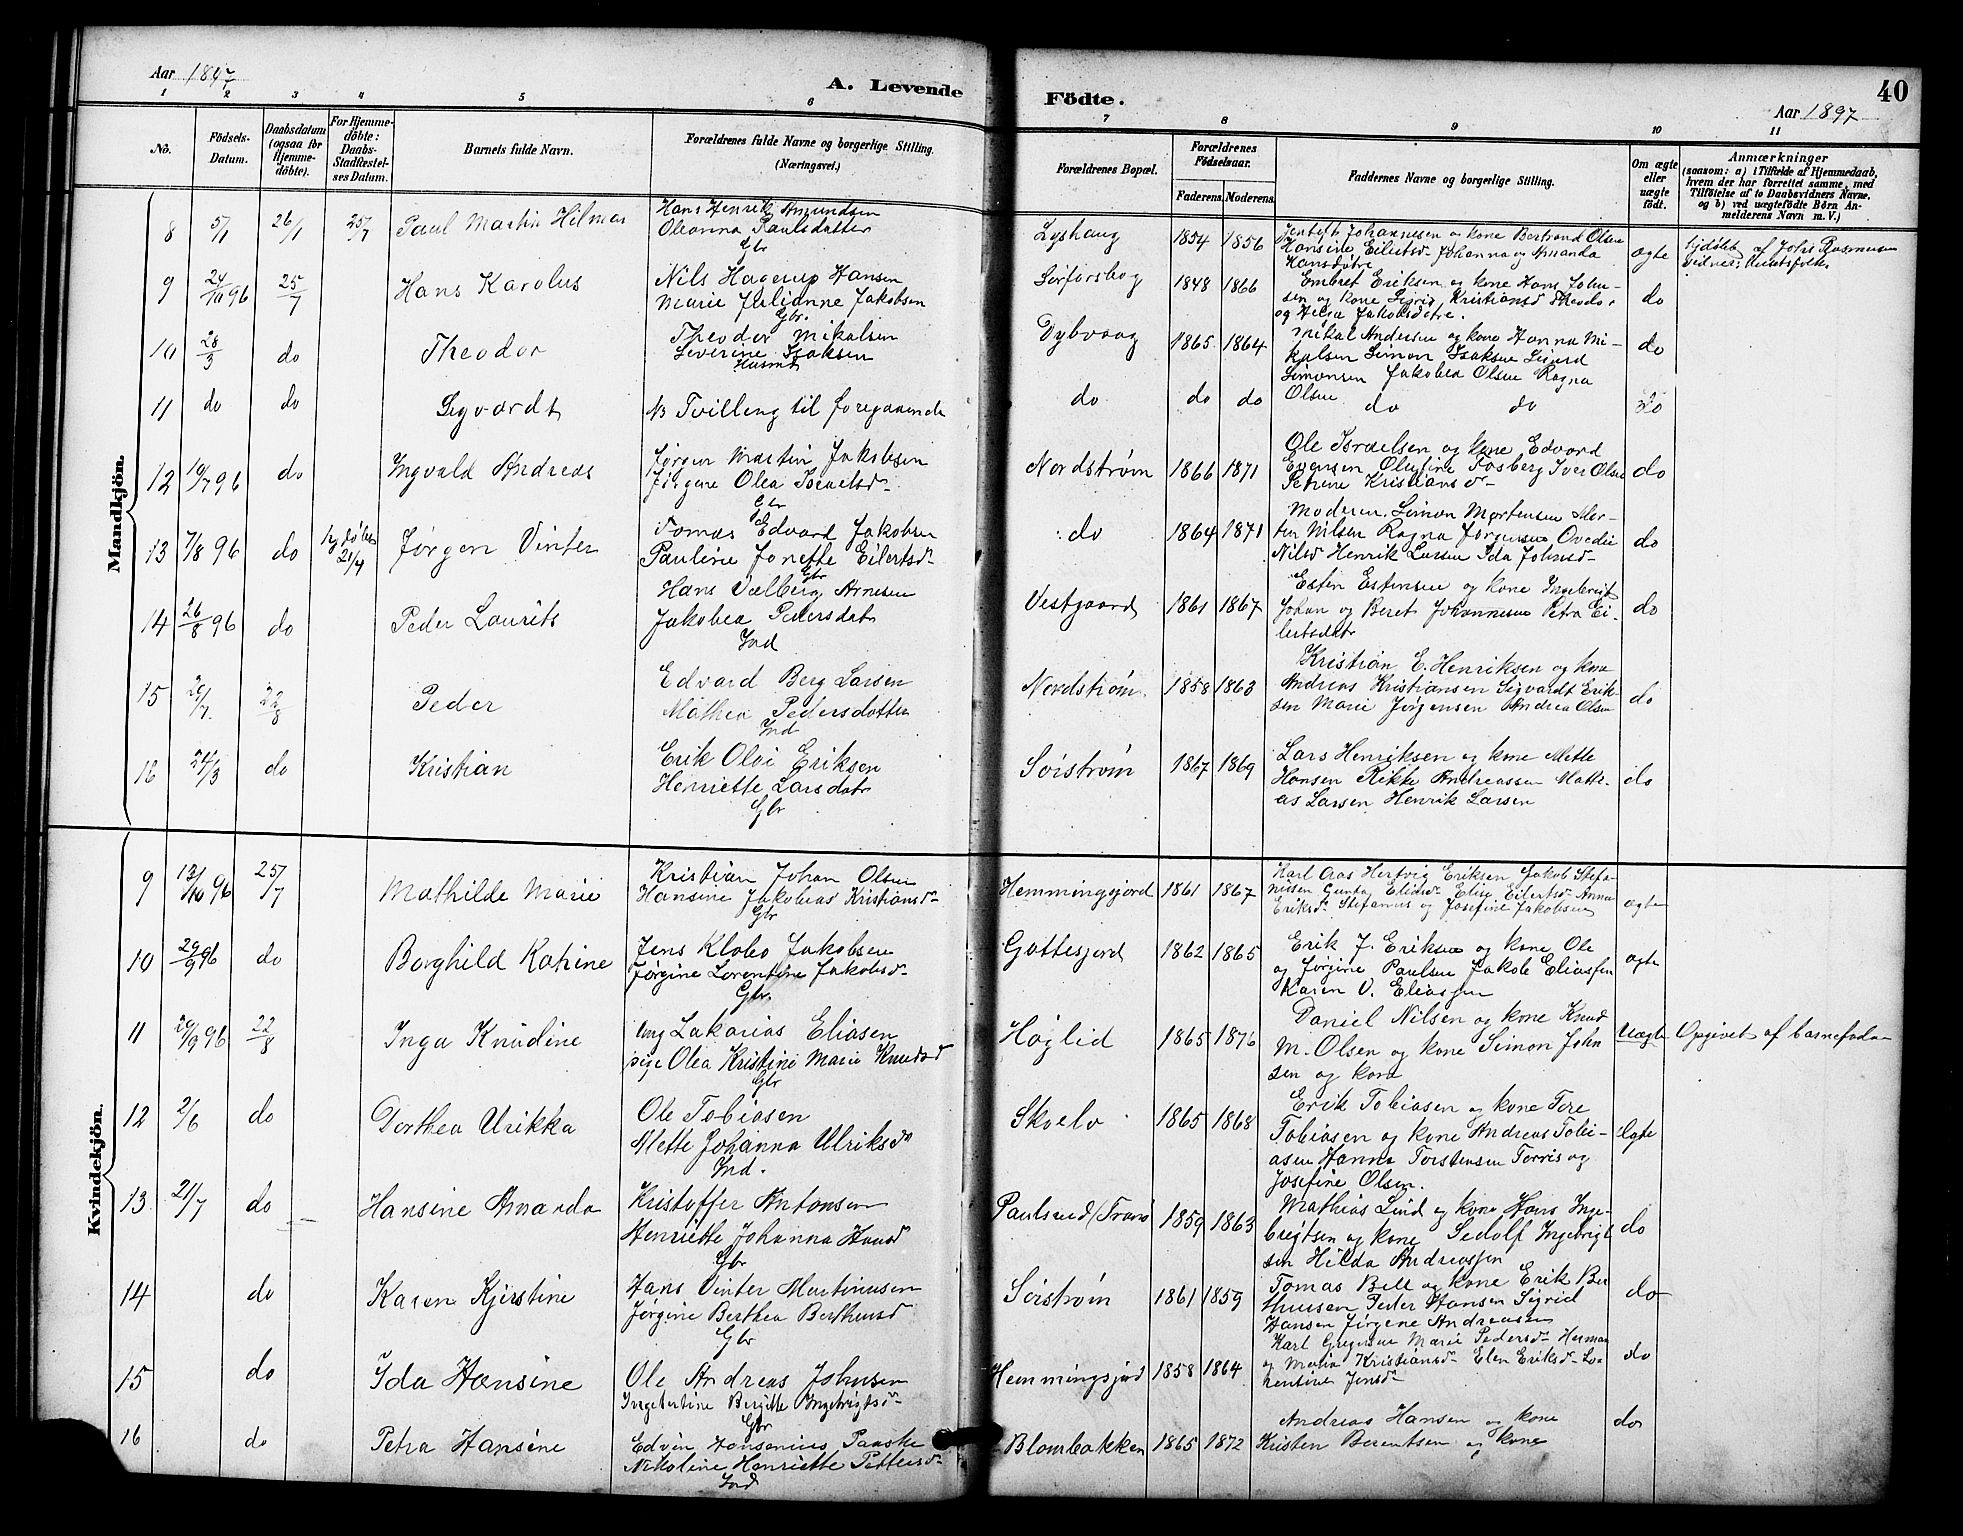 Aar 1897
A. Levende Födte.
Aar 1897
40
1 2 3 4 5 6 7 8 9 10 11
No.
Födsels-Datum.
Daabsdatum (ogsaa for Hjemme-döbte).
For Hjemme-döbte: Daabs-Stadfæstel-ses Datum.
Barnets fulde Navn.
Forældrenes fulde Navne og borgerlige Stilling. (Næringsvei.)
Forældrenes Bopæl.
Forældrenes Födselsaar.
Faderens. Moderens.
Faddernes Navne og borgerlige Stilling.
Om ægte eller uægte födt.
Anmærkninger
(saasom: a) i Tilfælde af Hjemmedaab, hvem der har forrettet samme, med Tilföielse af to Daabsvidners Navne, og b) ved uægtefödte Börn An-melderens Navn m. V.)
Mandkjön.
8 5/1 26/1 25/7 Paul Martin Hilmar
Hans Henrik Amundsen
Oleanna Paulsdatter
Gbr
Lyshaug 1854 1856
Johannesen og kone Bertrand Olsen
Hansine Eilertsd Johanna og Amanda
Hansdøtre
ægte
hjdøbt af Johs Rasmussen
9 24/10 96 25/7 Hans Karolus
Nils Hagerup Hansen
Marie Julianne Jakobsen
Gbr.
Sørforsbog 1848 1866
Embret Eriksen og kone Hans John-
sen og kone Sigrid Kristiansd Theodor
og Helga Jakobsdtre.
do
10 28/3 do Theodor
Theodor Mikalsen
Severine Isaksen
Husmd
Dybvaag 1865 1864
Mikal Andersen og kone Hanna Mi-
kalsen Simon Isaksen Sigurd
Simonsen Jakobea Olsen Ragna
Olsen
do
11 do do Sigvardt
NB Tvilling til foregaaende
do do do do do do
12 19/7 96 do Ingvald Andreas
Jørgen Martin Jakobsen
Jørgine Olea Israelsd-
Gbr
Nordstrøm 1866 1871
Ole Israelsen og kone Edvard
Evensen Olufine Fosberg Iver Olsen
Petrine Kristiansd-
do
13 7/8 96 do hjdøbt 21/4 Jørgen Vinter
Tomas Edvard Jakobsen
Pauline Jonette Eilertsd-
Gbr
do 1864 1871
Moderen. Simon Mortensen Mor-
ten Nilsen Ragna Jørgensen Ovedie
Nilsd Henrik Larsen Ida Johnsd-
do
14 26/8 96 do Peder Laurits
Hans Valberg Arnesen
Jakobea Pedersdatr
Ind
Vestgaard 1861 1867
Esten Estensen og kone Ingebrigt
Johan og Beret Johannesen Petra Ei-
lertsdatr
do
15 20/7. 22/8 Peder
Edvard Berg Larsen
Mathea Pedersdatter
Ind
Nordstrøm. 1858 1863
Kristian E. Henriksen og kone
Andreas Kristiansen Sigvardt Erik-
sen Marie Jørgensen Andrea Olsen
do
16 24/3 do Kristian
Erik Olai Eriksen
Henriette Larsdatr
Gbr
Sörstrøm 1867 1869
Lars Henriksen og kone Mette
Hansen Rikke Andreassen Mathi-
as Larsen Henrik Larsen
do
Kvindekjön.
9 13/10 96 25/7 Mathilde Marie
Kristian Johan Olsen
Hansine Jakobeas Kristiansd-
Gbr
Hemmingsjord 1861 1867
Karl Aas Hertvig Eriksen Jakob Stefa-
nussen Gunda Eliasd- Elise Eilertsd- Anna
Eriksd- Stefanus og Josefine Jakobsen
ægte
10 29/9 96 do Borghild Katrine
Jens Klobo Jakobsen
Jørgine Lorentine Jakobsd-
Gbr.
Gottesjord 1862 1865
Erik J. Eriksen og kone Ole
og Jørgine Paulsen Jakob Eliassen
Karen V. Eliassen
ægte
11 20/9 96 22/8 Inga Knudine
Ung Zakarias Eliasen
pige Olea Kristine Marie Knudsd
Gbr
Høglid 1865 1876
Daniel Nilsen og kone Knud
M. Olsen og kone Simon John
sen og kone
Uægte Opgivet af barnefader
12 2/6 do Dorthea Ulrikka
Ole Tobiasen
Mette Johanna Ulriksd-
Ind.
Skoelv 1865 1868
Erik Tobiasen og kone Tore
Tobiasen og kone Andreas Tobi-
asen Hanna Torstensen Torris og
Josefine Olsen.
ægte
13 21/7 do Hansine Amanda
Kristoffer Antonsen
Henriette Johanna Hansd
Gbr
Paulsrud/Tranø 1859 1863
Mathias Lind og kone Hans Inge-
brigtsen og kone Sedolf Ingebrigt
sen Hilda Andreassen
do
14 do Karen Kjerstine
Hans Vinter Martinusen
Jørgine Berthea Berthusd
Gbr
Sörstrøm 1861 1859
Tomas Bell og kone Erik Ber
thusen Peder Hansen Sigrid
Hansen Jørgene Andreasen
do
15 do Ida Hansine
Ole Andreas Johnsen
Ingebertine Bergitte Ingebrigtsd-
Gbr
Hemmingsjord 1858 1864
Karl Gregersen Marie Pedersd- Herman
og Maria Kristiansd- Elen Eriksd- Lo-
rentine Jensd-
do
16 do Petra Hansine
Edvin Hansenius Paaske
Nikoline Henriette Pettersd-
Ind
Blombakken 1865 1872
Andreas Hansen og kone
Kristen Berentsen og kone
do